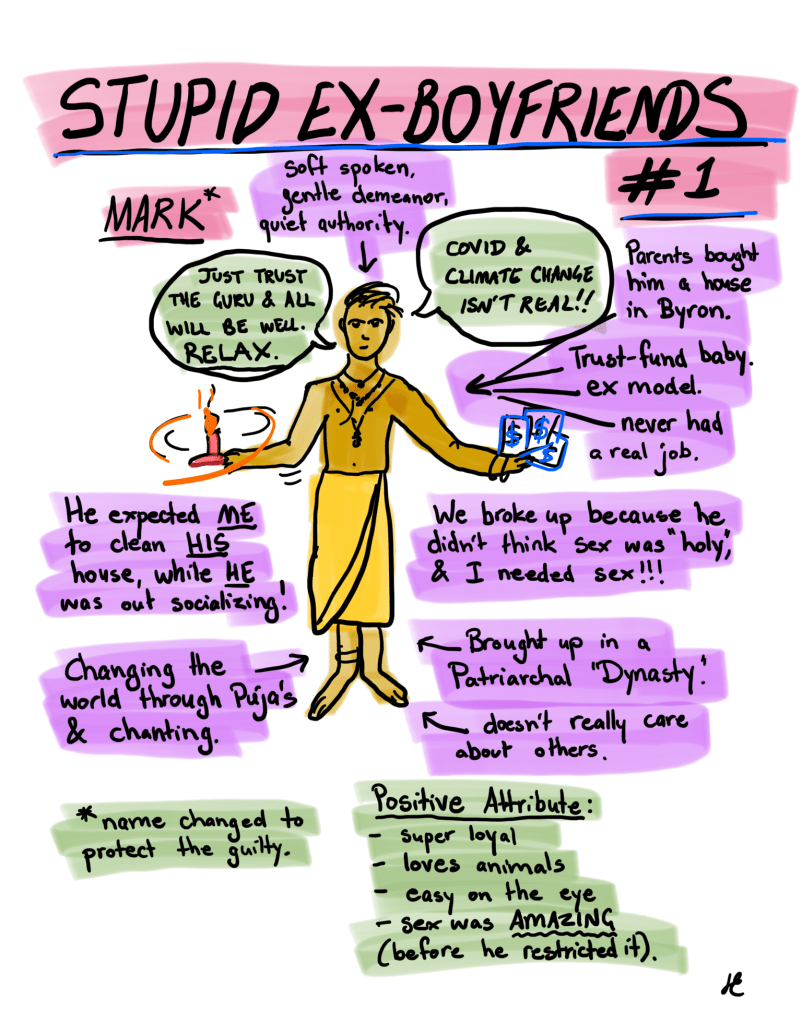 STUPID EX-BOYFRIENDS
#1
MARK*
Soft spoken,
gentle demeanor,
quiet authority.
JUST TRUST
THE GURU & ALL
WILL BE WELL.
RELAX.
COVID &
CLIMATE CHANGE
ISN'T REAL!!
Parents bought
him a house
in Byron.
Trust-fund baby.
ex model.
never had
a real job.
$
$
$
He expected ME
to clean HIS
house, while HE
was out socializing!
We broke up because he
didn't think sex was "holy",
& I needed sex!!!
Changing the
world through Púja's
& chanting.
Brought up in a
Patriarchal 'Dynasty'.
doesn't really care
about others.
* name changed to
protect the guilty.
Positive Attribute:
- super loyal
- loves animals
- easy on the eye
- sex was AMAZING
(before he restricted it).